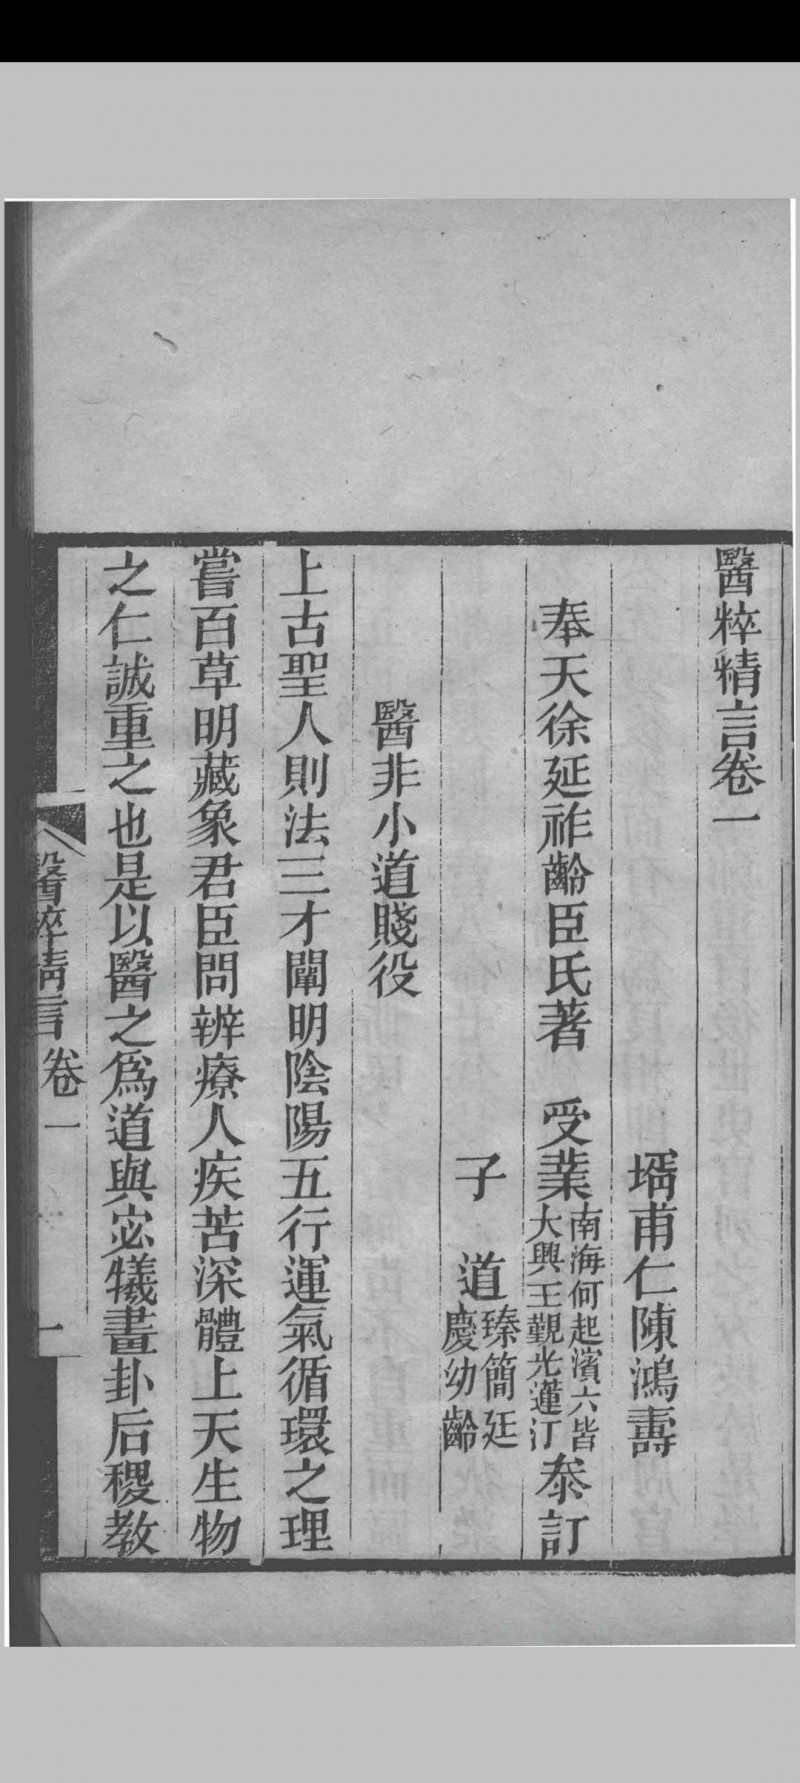 醫粹精言卷一
壻甫仁陳鴻壽
奉天徐延祚齡臣氏著　受業南海何起濱六皆大興王觀光蓮汀叅訂
子　道臻簡廷慶幼齡
醫非小道賤役
上古聖人則法三才闡明陰陽五行運氣循環之理
嘗百草明藏象君臣問辨療人疾苦深體上天生物
之仁誠重之也是以醫之爲道與宓犧畫卦后稷教
醫粹精言卷一　一